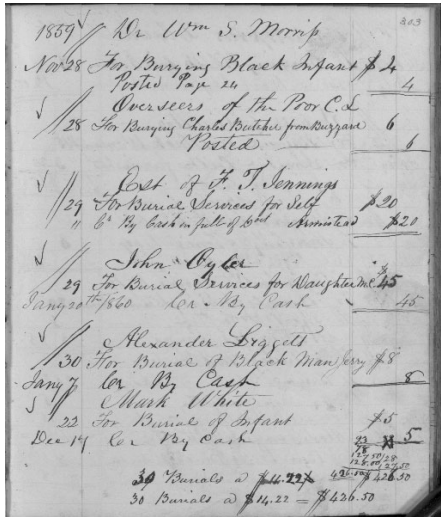 303
1859 Dr Wm S. Morriss
Nov 28 For Burying Black Infant $4
Posted Page 24 4
Overseers of the Poor C.L
28 For Burying Charles Butcher from Buzzard 6
Posted 6
Est. of F. T. Jennings
29 For Burial Services for Self $20
" Cr By Cash in full of Doct Armistead $20
John Oyler
29 For Burial Services for Daughter M.E. $45
Jany 20th 1860 Cr By Cash 45
Alexander Liggett
30 For Burial of Black Man Jerry $8
Jany 7 Cr By Cash 8
Mark White
22 For Burial of Infant $5
Dec 14 Cr By Cash 5
30 Burials a $14.22 $426.50
30 Burials a $14.22 = $426.50